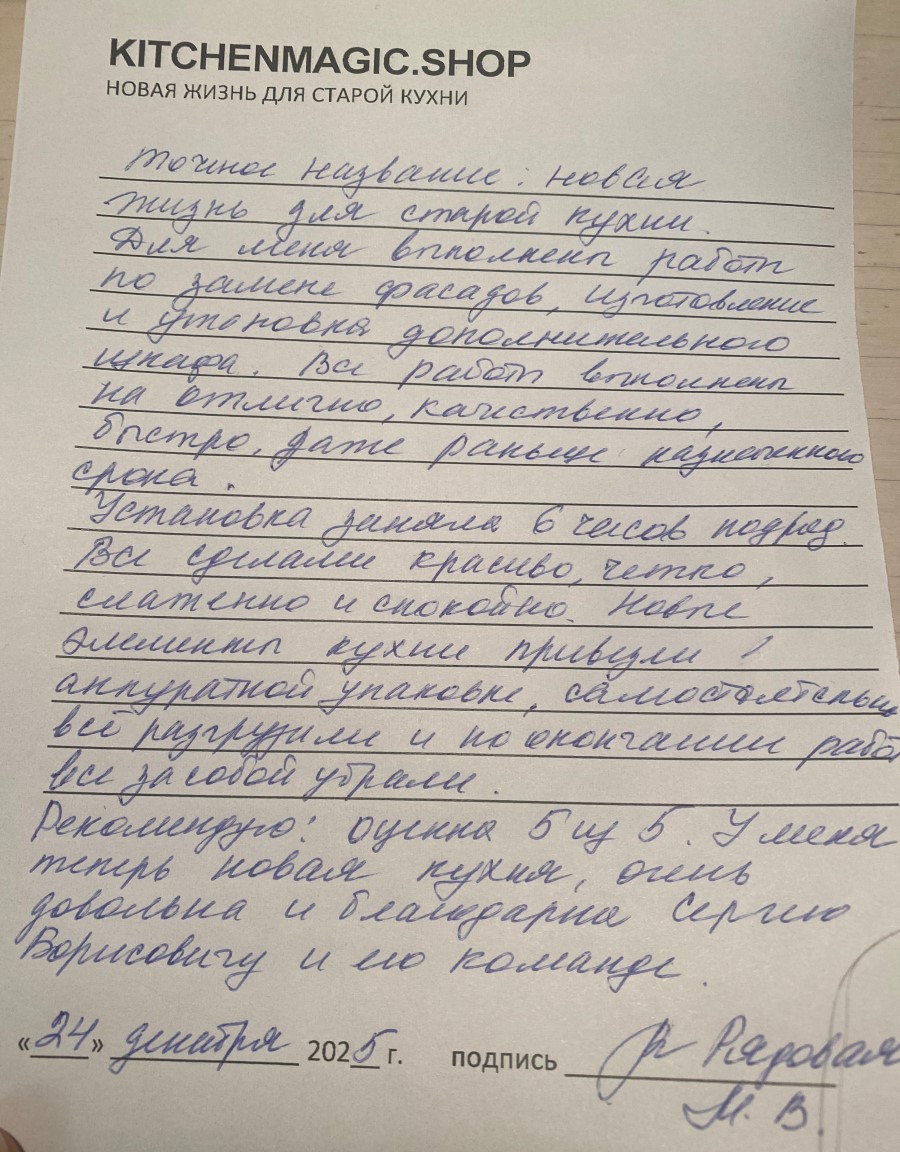 KITCHENMAGIC.SHOP
НОВАЯ ЖИЗНЬ ДЛЯ СТАРОЙ КУХНИ
точное название: новая
жизнь для старой кухни.
Для меня выполнены работы
по замене фасадов, изготовление
и установка дополнительного
шкафа. Все работы выполнены
на отлично, качественно,
быстро, даже раньше назначенного
срока.
Установка заняла 6 часов подряд.
Все сделали красиво, четко,
слаженно и спокойно. Новые
элементы кухни привезли в
аккуратной упаковке, самостоятельно
всё разгрузили и по окончании работ
все за собой убрали.
Рекомендую! оценка 5 из 5. У меня
теперь новая кухня, очень
довольна и благодарна Сергею
Борисовичу и его команде.
«24» декабря 2025 г. подпись Рядовая
М. В.